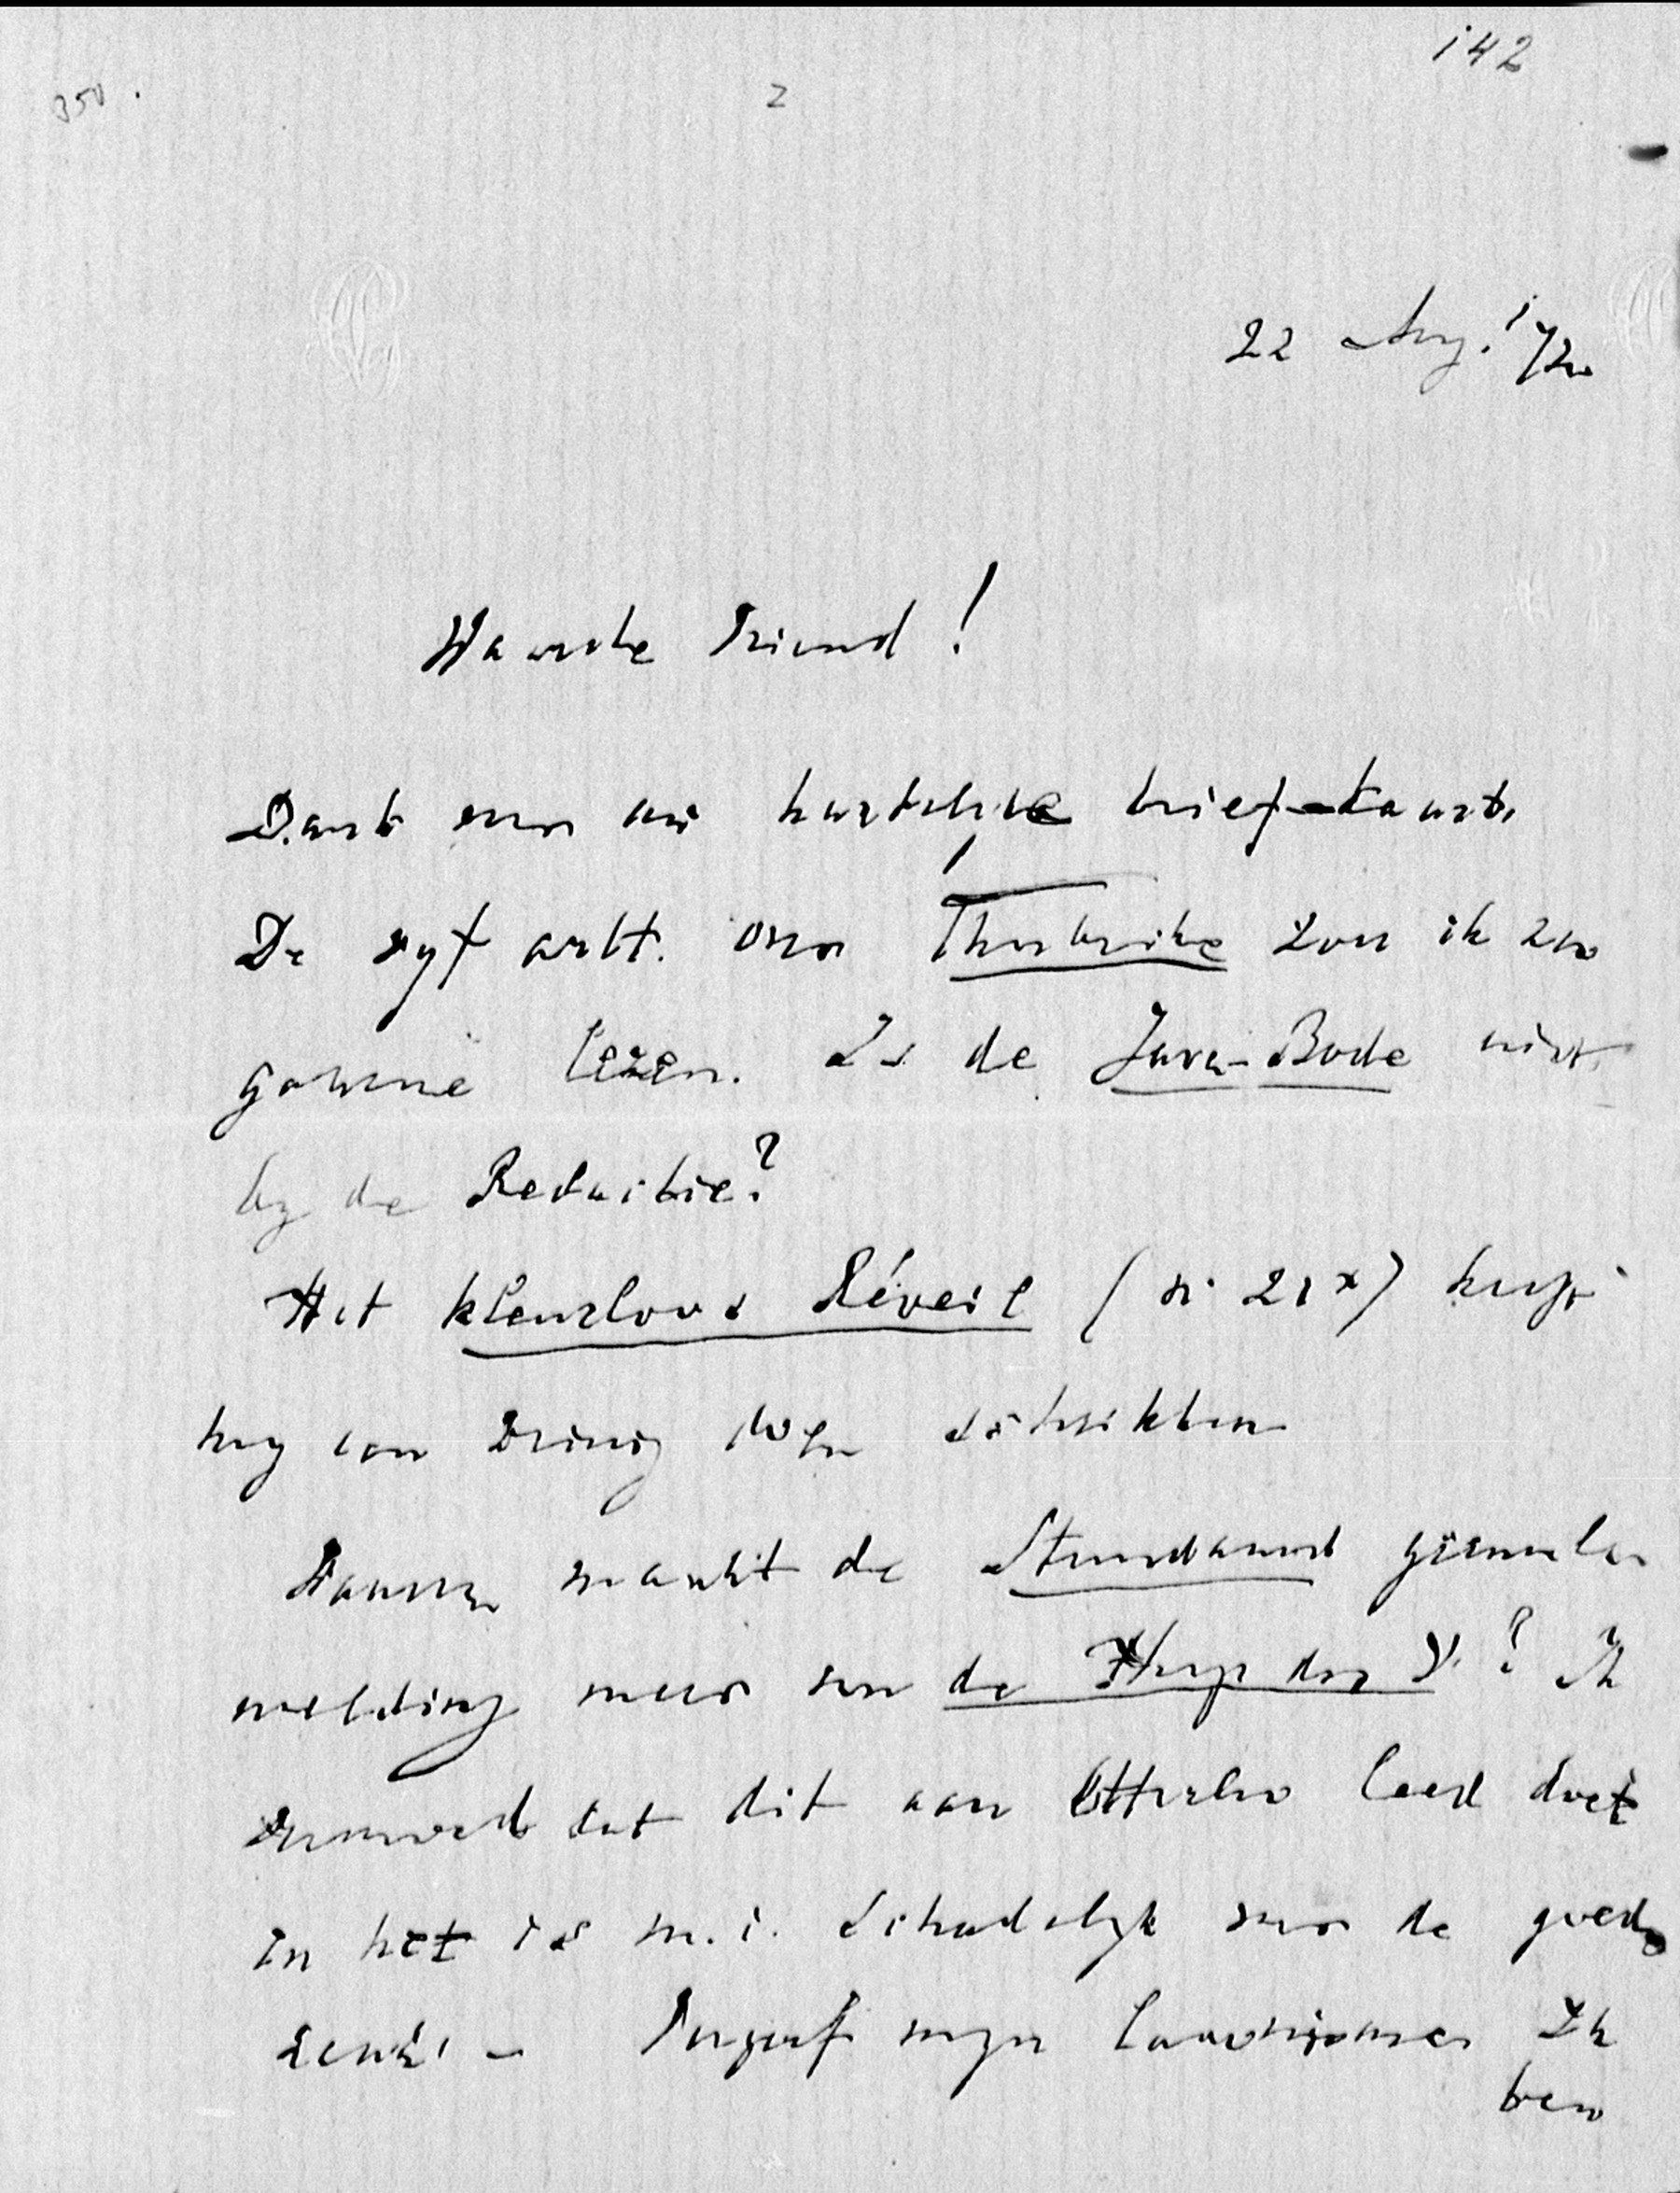 142
350.
2
22 Aug. '72.
Waarde Vriend!
Dank voor uw hartelijke brief-kaart.
De vyf artt. over Thorbecke zou ik zoo
gaarne lezen. Is de Java-Bode niet
by de Redactie?
Het kleurloos Réveil (N° 21 x)
hy van doen
Waarom maakt de Standaard geenerlei
melding meer van de Heup der J.? Ik
vermoed dat dit aan Otterloo leed doet
en het is m.i. schadelyk voor de goede
zaak. — Vergeef myn laconisme. Ik
ben